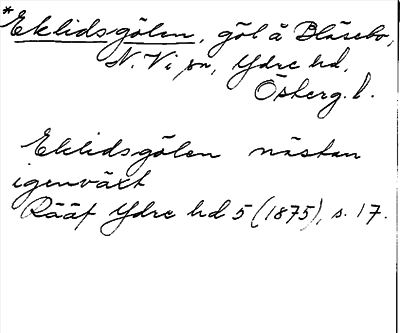 *Eklidsgölen, göl å Blåsebo,
N. Vi sn, Ydre hd,
Österg. l.
Eklidsgölen nästan
igenväxt
Rääf Ydre hd 5 (1875), s. 17.